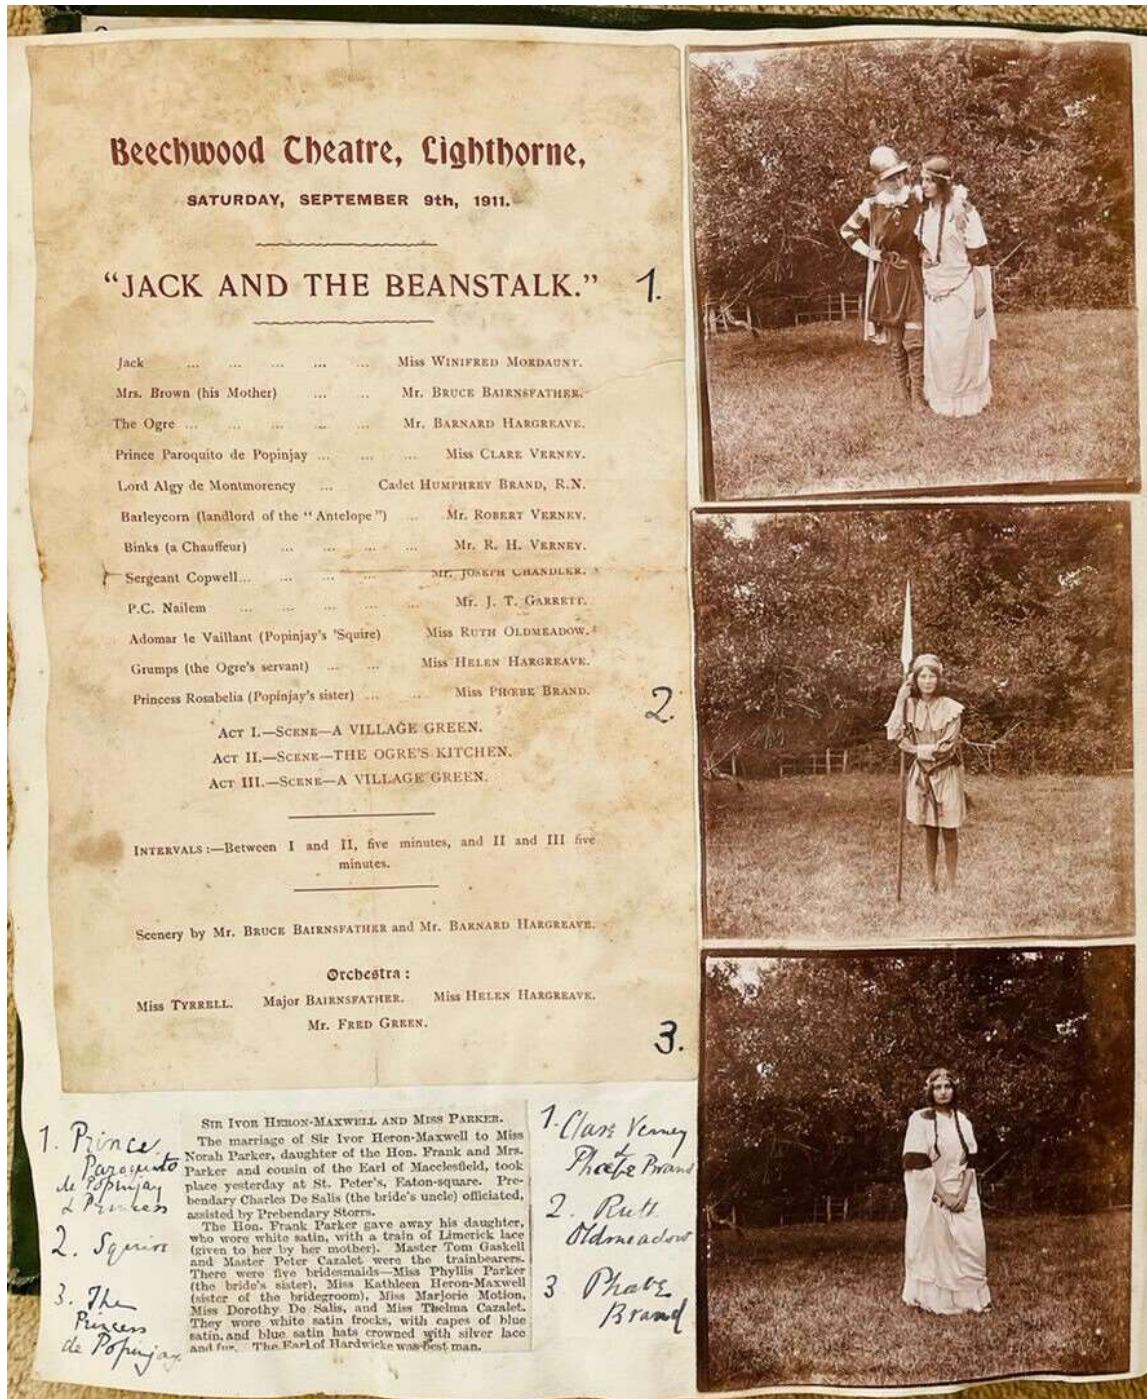 Beechwood Theatre, Lighthorne,
SATURDAY, SEPTEMBER 9th, 1911.
"JACK AND THE BEANSTALK."
Jack ... ... ... ... ... Miss WINIFRED MORDAUNT.
Mrs. Brown (his Mother) ... ... Mr. BRUCE BAIRNSFATHER.
The Ogre ... ... ... ... ... Mr. BARNARD HARGREAVE.
Prince Paroquito de Popinjay ... ... ... Miss CLARE VERNEY.
Lord Algy de Montmorency ... Cadet HUMPHREY BRAND, R.N.
Barleycorn (landlord of the "Antelope") ... Mr. ROBERT VERNEY.
Binks (a Chauffeur) ... ... ... ... Mr. R. H. VERNEY.
Sergeant Copwell... ... ... ... Mr. JOSEPH CHANDLER.
P.C. Nailem ... ... ... ... ... Mr. J. T. GARRETT.
Adomar le Vaillant (Popinjay's 'Squire) Miss RUTH OLDMEADOW.
Grumps (the Ogre's servant) ... ... Miss HELEN HARGREAVE.
Princess Rosabelia (Popinjay's sister) ... ... Miss PHŒBE BRAND.
ACT I.—SCENE—A VILLAGE GREEN.
ACT II.—SCENE—THE OGRE'S KITCHEN.
ACT III.—SCENE—A VILLAGE GREEN.
INTERVALS:—Between I and II, five minutes, and II and III five
minutes.
Scenery by Mr. BRUCE BAIRNSFATHER and Mr. BARNARD HARGREAVE.
Orchestra:
Miss TYRRELL. Major BAIRNSFATHER. Miss HELEN HARGREAVE.
Mr. FRED GREEN.
1.
2.
3.
1. Prince
Paroquito
de Popinjay
& Princess
2. Squire
3. The
Princess
de Popinjay
SIR IVOR HERON-MAXWELL AND MISS PARKER.
The marriage of Sir Ivor Heron-Maxwell to Miss
Norah Parker, daughter of the Hon. Frank and Mrs.
Parker and cousin of the Earl of Macclesfield, took
place yesterday at St. Peter's, Eaton-square. Pre-
bendary Charles De Salis (the bride's uncle) officiated,
assisted by Prebendary Storrs.
The Hon. Frank Parker gave away his daughter,
who wore white satin, with a train of Limerick lace
(given to her by her mother). Master Tom Gaskell
and Master Peter Cazalet were the trainbearers.
There were five bridesmaids—Miss Phyllis Parker
(the bride's sister), Miss Kathleen Heron-Maxwell
(sister of the bridegroom), Miss Marjorie Motion,
Miss Dorothy De Salis, and Miss Thelma Cazalet.
They wore white satin frocks, with capes of blue
satin, and blue satin hats crowned with silver lace
and fur. The Earl of Hardwicke was best man.
1. Clare Verney
&
Phœbe Brand
2. Ruth
Oldmeadow
3 Phœbe
Brand